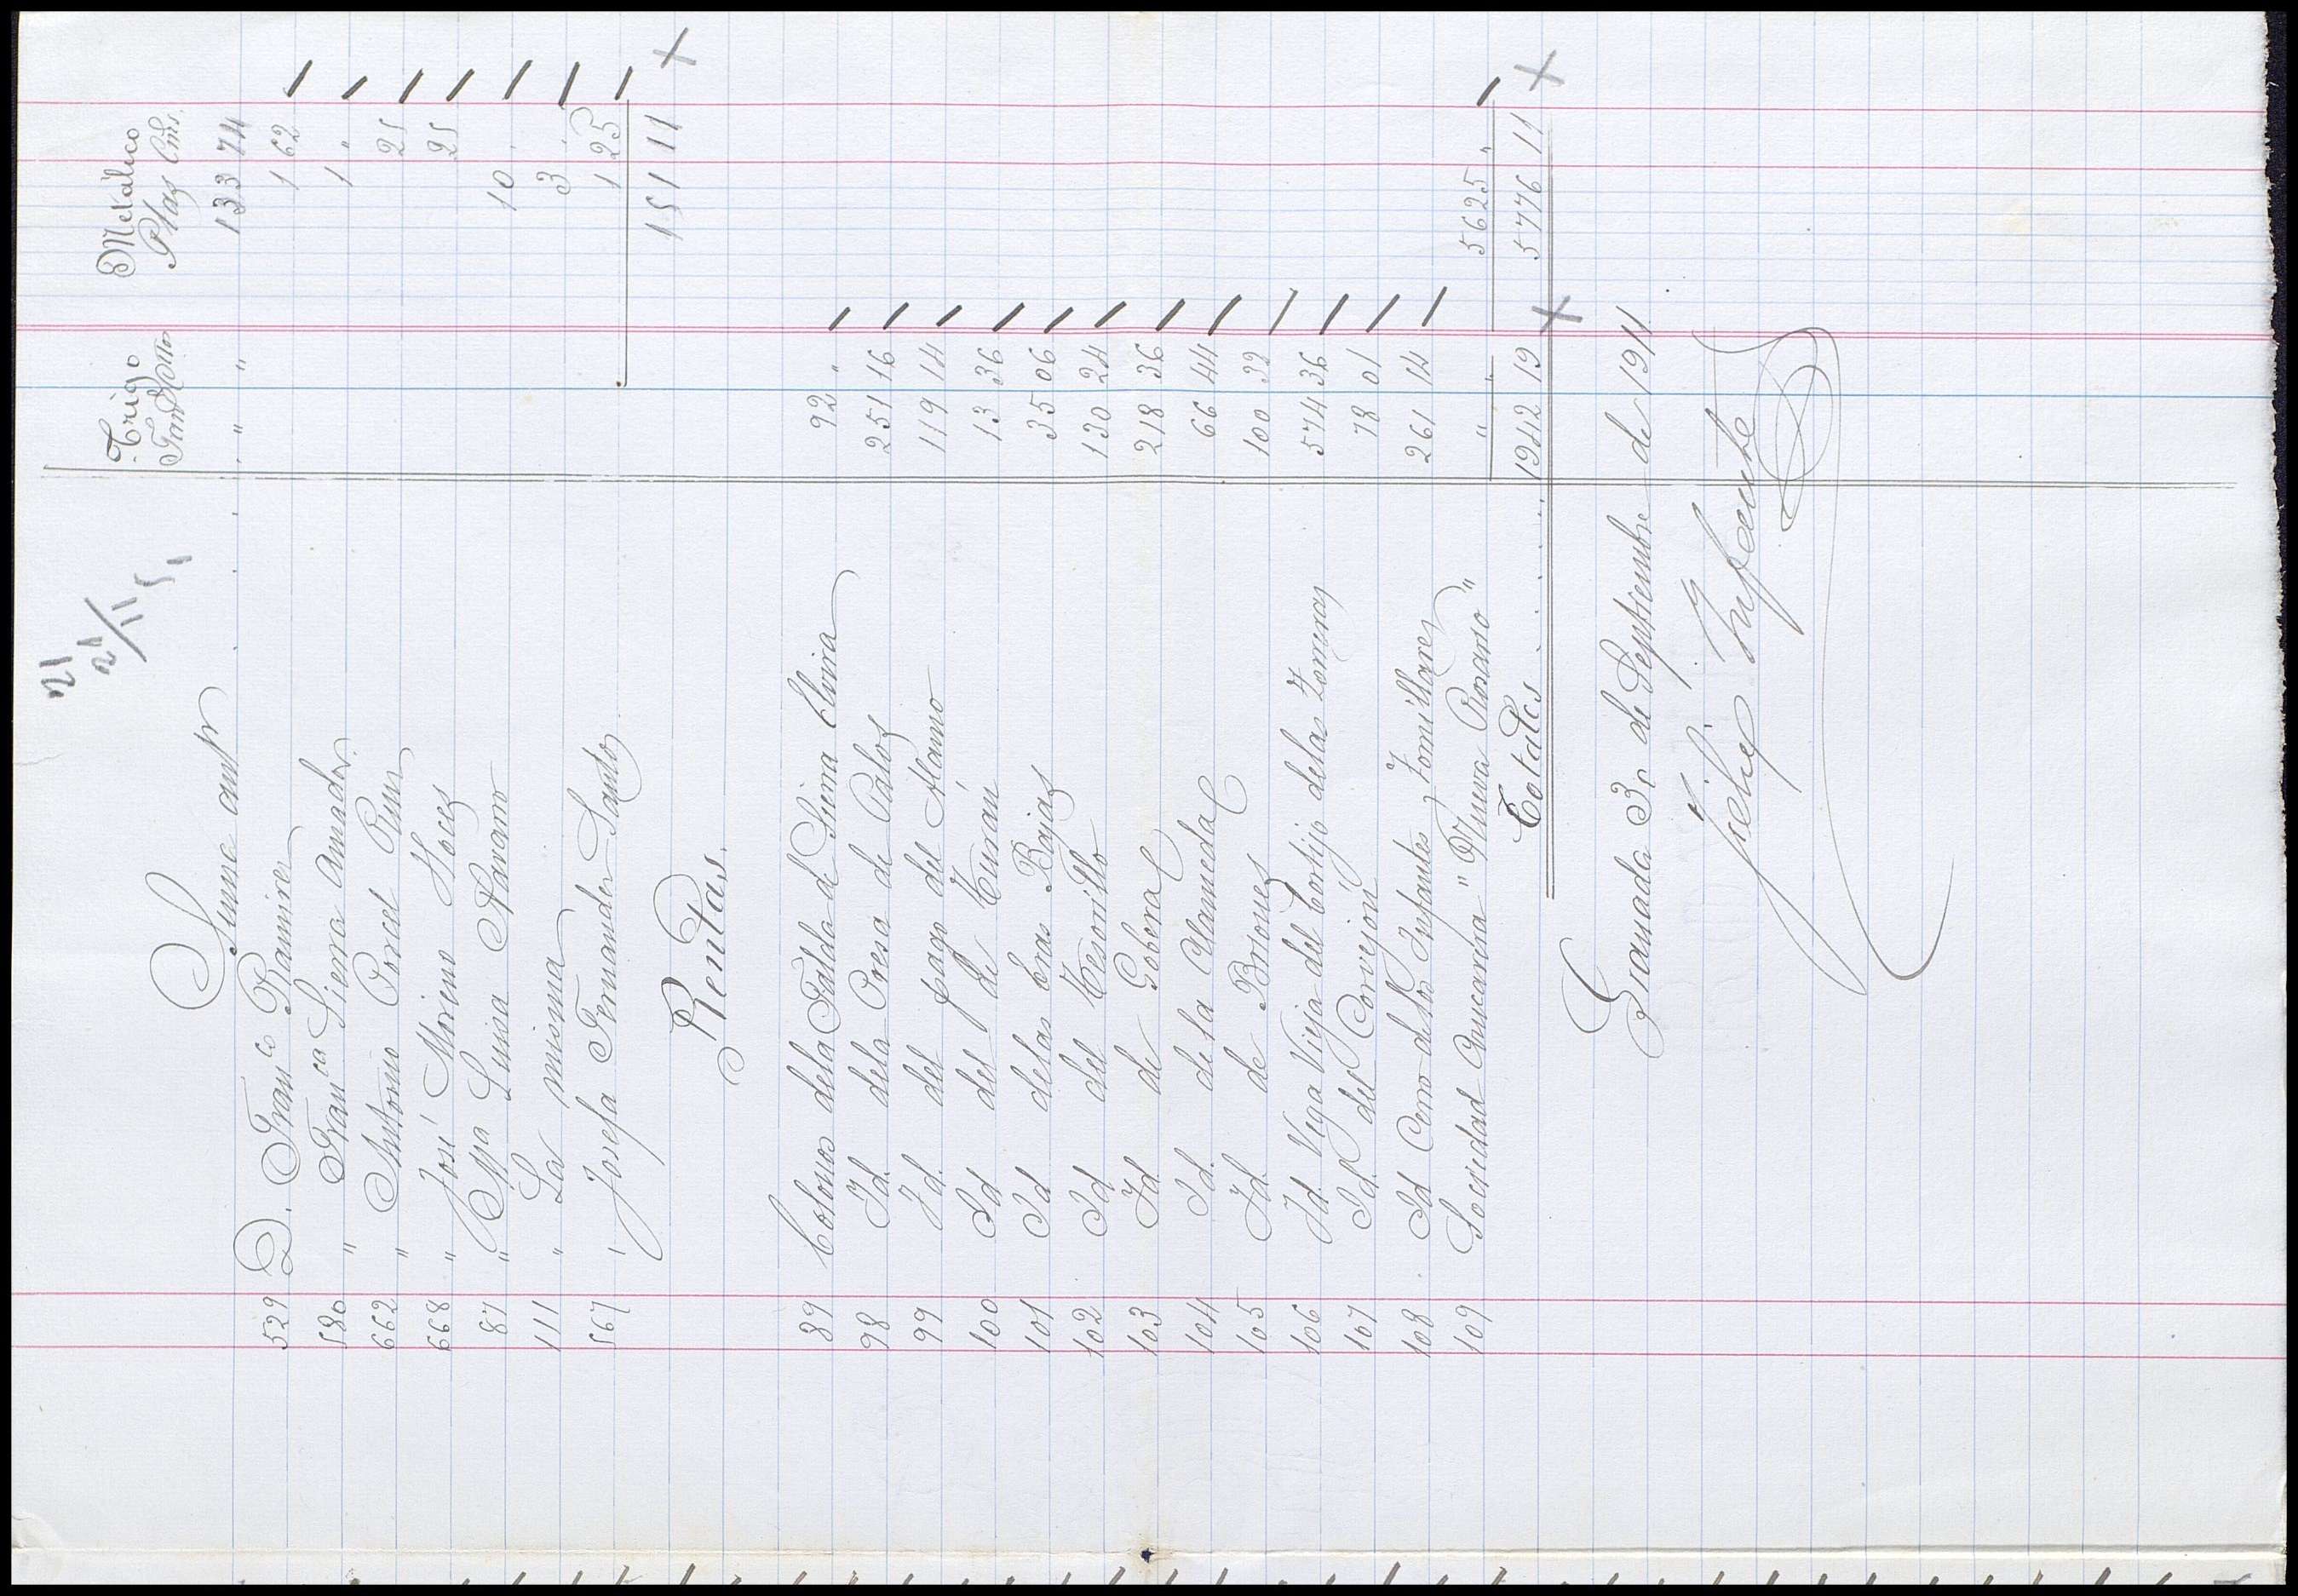 21
21/11 51
Trigo Metálico
Ptas Cms.
Suma antr . . . . " " 133 74
529 D. Franco Ramirez 1 62
580 " Franca Sierra Amador 1 "
662 " Antonio Porcel Ruiz 25
668 " José Moreno Hoces 25
87 " Ma Luisa Páramo 10 "
111 " La misma 3 "
567 " Josefa Fernandez Santos 1 25
151 11
Rentas.
89 Colonos dela Falda de Sierra Elvira 92 "
98 Id. dela Presa de Palos 251 16
99 Id. del pago del Álamo 119 14
100 Id del de Turán 13 36
101 Id delas Eras Bajas 35 06
102 Id del Tesorillo 130 24
103 Id de Goberal 218 36
104 Id. de la Alameda 66 44
105 Id. de Briones 100 32
106 Id. Vega Vieja del Cortijo delas Zorreras 574 36
107 Id. del Corvejon 78 01
108 Id Cerro delos Infantes y Tomillares 261 14
109 Sociedad Azucarera "Nueva Rosario" " " 5625 "
Totales . . . . . 1942 19 5776 11
Granada 30 de Septiembre de 1911.
Felip Infante